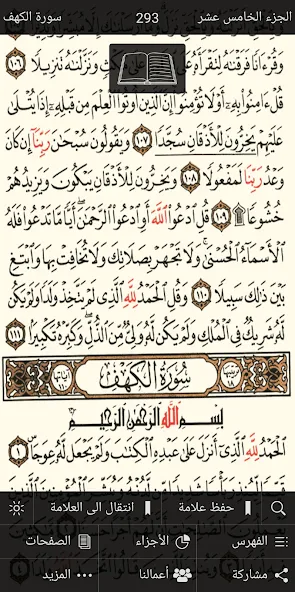 الجزء الخامس عشر 293 سورة الكهف
وَقُرْءَانًا فَرَقْنَٰهُ لِتَقْرَأَهُۥ عَلَى ٱلنَّاسِ عَلَىٰ مُكْثٍ وَنَزَّلْنَٰهُ تَنزِيلًا ١٠٦
قُلْ ءَامِنُوا۟ بِهِۦٓ أَوْ لَا تُؤْمِنُوٓا۟ إِنَّ ٱلَّذِينَ أُوتُوا۟ ٱلْعِلْمَ مِن قَبْلِهِۦٓ إِذَا يُتْلَىٰ
عَلَيْهِمْ يَخِرُّونَ لِلْأَذْقَانِ سُجَّدًا ١٠٧ وَيَقُولُونَ سُبْحَٰنَ رَبِّنَآ إِن كَانَ
وَعْدُ رَبِّنَا لَمَفْعُولًا ١٠٨ وَيَخِرُّونَ لِلْأَذْقَانِ يَبْكُونَ وَيَزِيدُهُمْ
خُشُوعًا ١٠٩ قُلِ ٱدْعُوا۟ ٱللَّهَ أَوِ ٱدْعُوا۟ ٱلرَّحْمَٰنَ أَيًّا مَّا تَدْعُوا۟ فَلَهُ
ٱلْأَسْمَآءُ ٱلْحُسْنَىٰ وَلَا تَجْهَرْ بِصَلَاتِكَ وَلَا تُخَافِتْ بِهَا وَٱبْتَغِ
بَيْنَ ذَٰلِكَ سَبِيلًا ١١٠ وَقُلِ ٱلْحَمْدُ لِلَّهِ ٱلَّذِى لَمْ يَتَّخِذْ وَلَدًا وَلَمْ يَكُن
لَّهُۥ شَرِيكٌ فِى ٱلْمُلْكِ وَلَمْ يَكُن لَّهُۥ وَلِىٌّ مِّنَ ٱلذُّلِّ وَكَبِّرْهُ تَكْبِيرًۢا ١١١
سُورَةُ ٱلْكَهْفِ
بِسْمِ ٱللَّهِ ٱلرَّحْمَٰنِ ٱلرَّحِيمِ
ٱلْحَمْدُ لِلَّهِ ٱلَّذِىٓ أَنزَلَ عَلَىٰ عَبْدِهِ ٱلْكِتَٰبَ وَلَمْ يَجْعَل لَّهُۥ عِوَجَا ١
حفظ علامة انتقال الى العلامة
الفهرس الأجزاء الصفحات
مشاركة أعمالنا المزيد